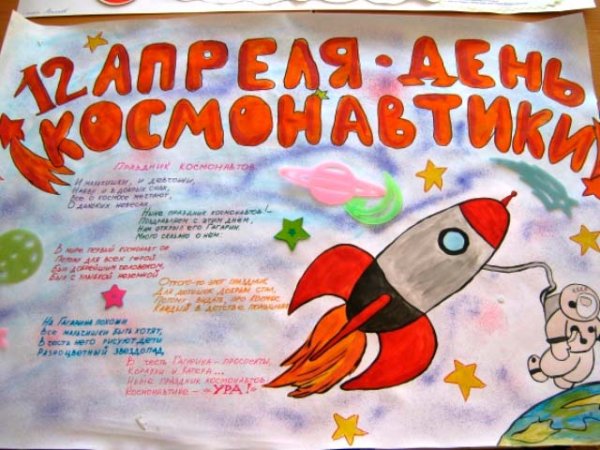 12 АПРЕЛЯ - ДЕНЬ
КОСМОНАВТИКИ
ПРАЗДНИК КОСМОНАВТОВ
И мальчишки, и девчонки,
Наяву и в добрых снах,
Все о космосе мечтают,
О далеких небесах.
Ныне праздник космонавтов!-
Поздравляем с этим днем,
Нам открыл его Гагарин,
Много сказано о нем.
В мире первый космонавт он
Потому для всех герой
Был добрейшим человеком,
Был с улыбкой неземной
Оттого-то этот праздник
Для детишек добрым стал,
Потому, видать, про космос
Каждый в детстве
На Гагарина похожи
Все мальчишки быть хотят,
В честь него рисуют дети
Разноцветный звездопад.
В честь Гагарина - проспекты,
Корабли и катера...
Ныне праздник космонавтов
Космонавтике - "УРА!"